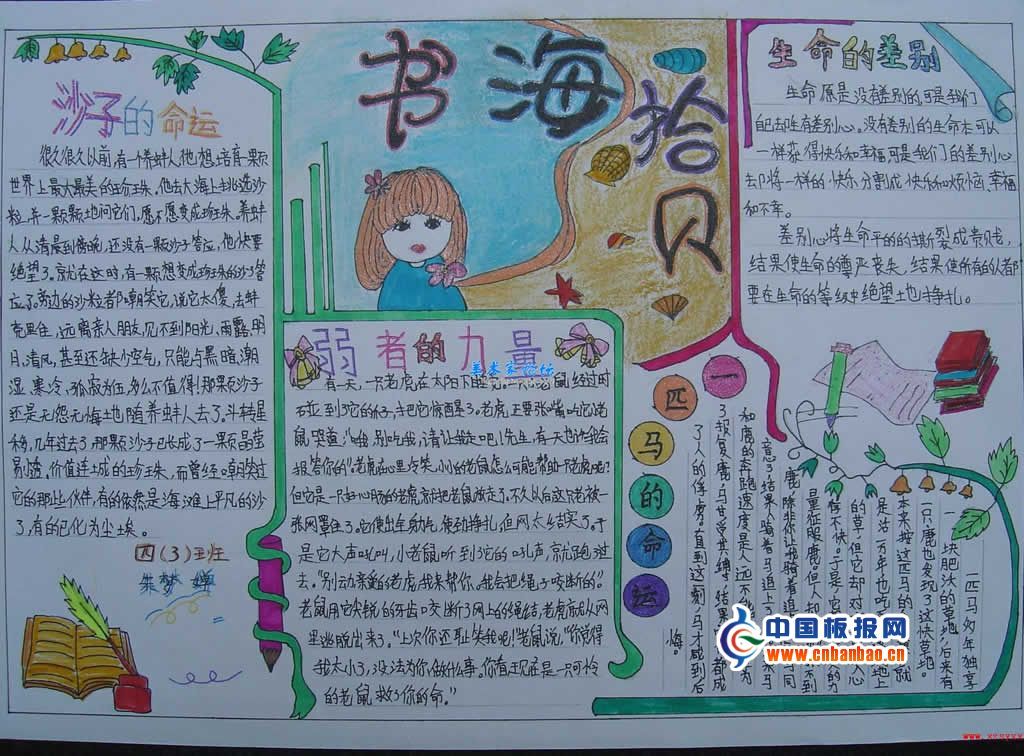 书海拾贝
沙子的命运
很久很久以前,有一个养蚌人,他想培育一颗
世界上最大最美的珍珠。他去大海上挑选沙
粒,并一颗颗地问它们,愿不愿变成珍珠。养蚌
人从清晨到傍晚,还没有一颗沙子答应,他快要
绝望了。就在这时,有一颗想变成珍珠的沙子答
应了。旁边的沙粒都嘲笑它,说它太傻,去蚌
壳里住,远离亲人朋友,见不到阳光、雨露、明
月、清风,甚至还缺少空气,只能与黑暗、潮
湿、寒冷、孤寂为伍,多么不值得!那颗沙子
还是无怨无悔地随养蚌人去了。斗转星
移,几年过去了,那颗沙子已长成了一颗晶莹
剔透、价值连城的珍珠,而曾经嘲笑过
它的那些伙伴,有的依然是海滩上平凡的沙
子,有的已化为尘埃。
四(3)班
朱梦婵
弱者的力量
美术家论坛
有一天,一只老虎在太阳下睡 鼠经过时
碰到了它的 ,把它惊醒了。老虎正要张嘴吃它,老
鼠哭道:"哦,别吃我,请让我走吧!先生,有一天也许我会
报答你的"老虎在心里冷笑,小小的老鼠怎么可能帮助一只老虎呢?
但它是一只好心肠的老虎,就把老鼠放走了。不久以后这只老被一
张网罩住了。它使出全身力气,使劲挣扎,但网太结实了。于
是它大声吼叫,小老鼠听到了它的吼声,就跑过
去。"别动亲爱的老虎,我来帮你,我会把绳子咬断的"
老鼠用它尖锐的牙齿咬断了网上的绳结,老虎就从网
里逃脱出来了。"上次你还耻笑我呢!"老鼠说,"你觉得
我太小了,没法为你做什么事。你看,现在是一只可怜
的老鼠救了你的命。"
生命的差别
生命原是没有差别的,可是我们
自己去生有差别心。没有差别的生命本可以
一样获得快乐和幸福,可是我们的差别心
去却将一样的快乐分割成快乐和烦恼、幸福
和不幸。
差别心将生命平的的撕裂成贵贱,
结果使生命的尊严丧失,结果使所有的人都
要在生命的等级中绝望土也挣扎。
一匹马的命运
一匹马匆年独享
一块肥沃的草地,后来有
一只鹿也发现了这快草地。
本来按这匹马的 就
是沽一万年也吃 地上
的草,但它却对 人心
里 得不快。于是 的力
量征服鹿。但人却 不到
鹿,除非你让我骑着追 马同
意了。结果人骑着马追上了 马
和鹿的奔跑速度是人 远不能 为
了报复鹿,马甘受其缚,结果 都成
了人的俘虏。直到这一刻,马才感到后
悔。
中国板报网
www.cnbanbao.cn